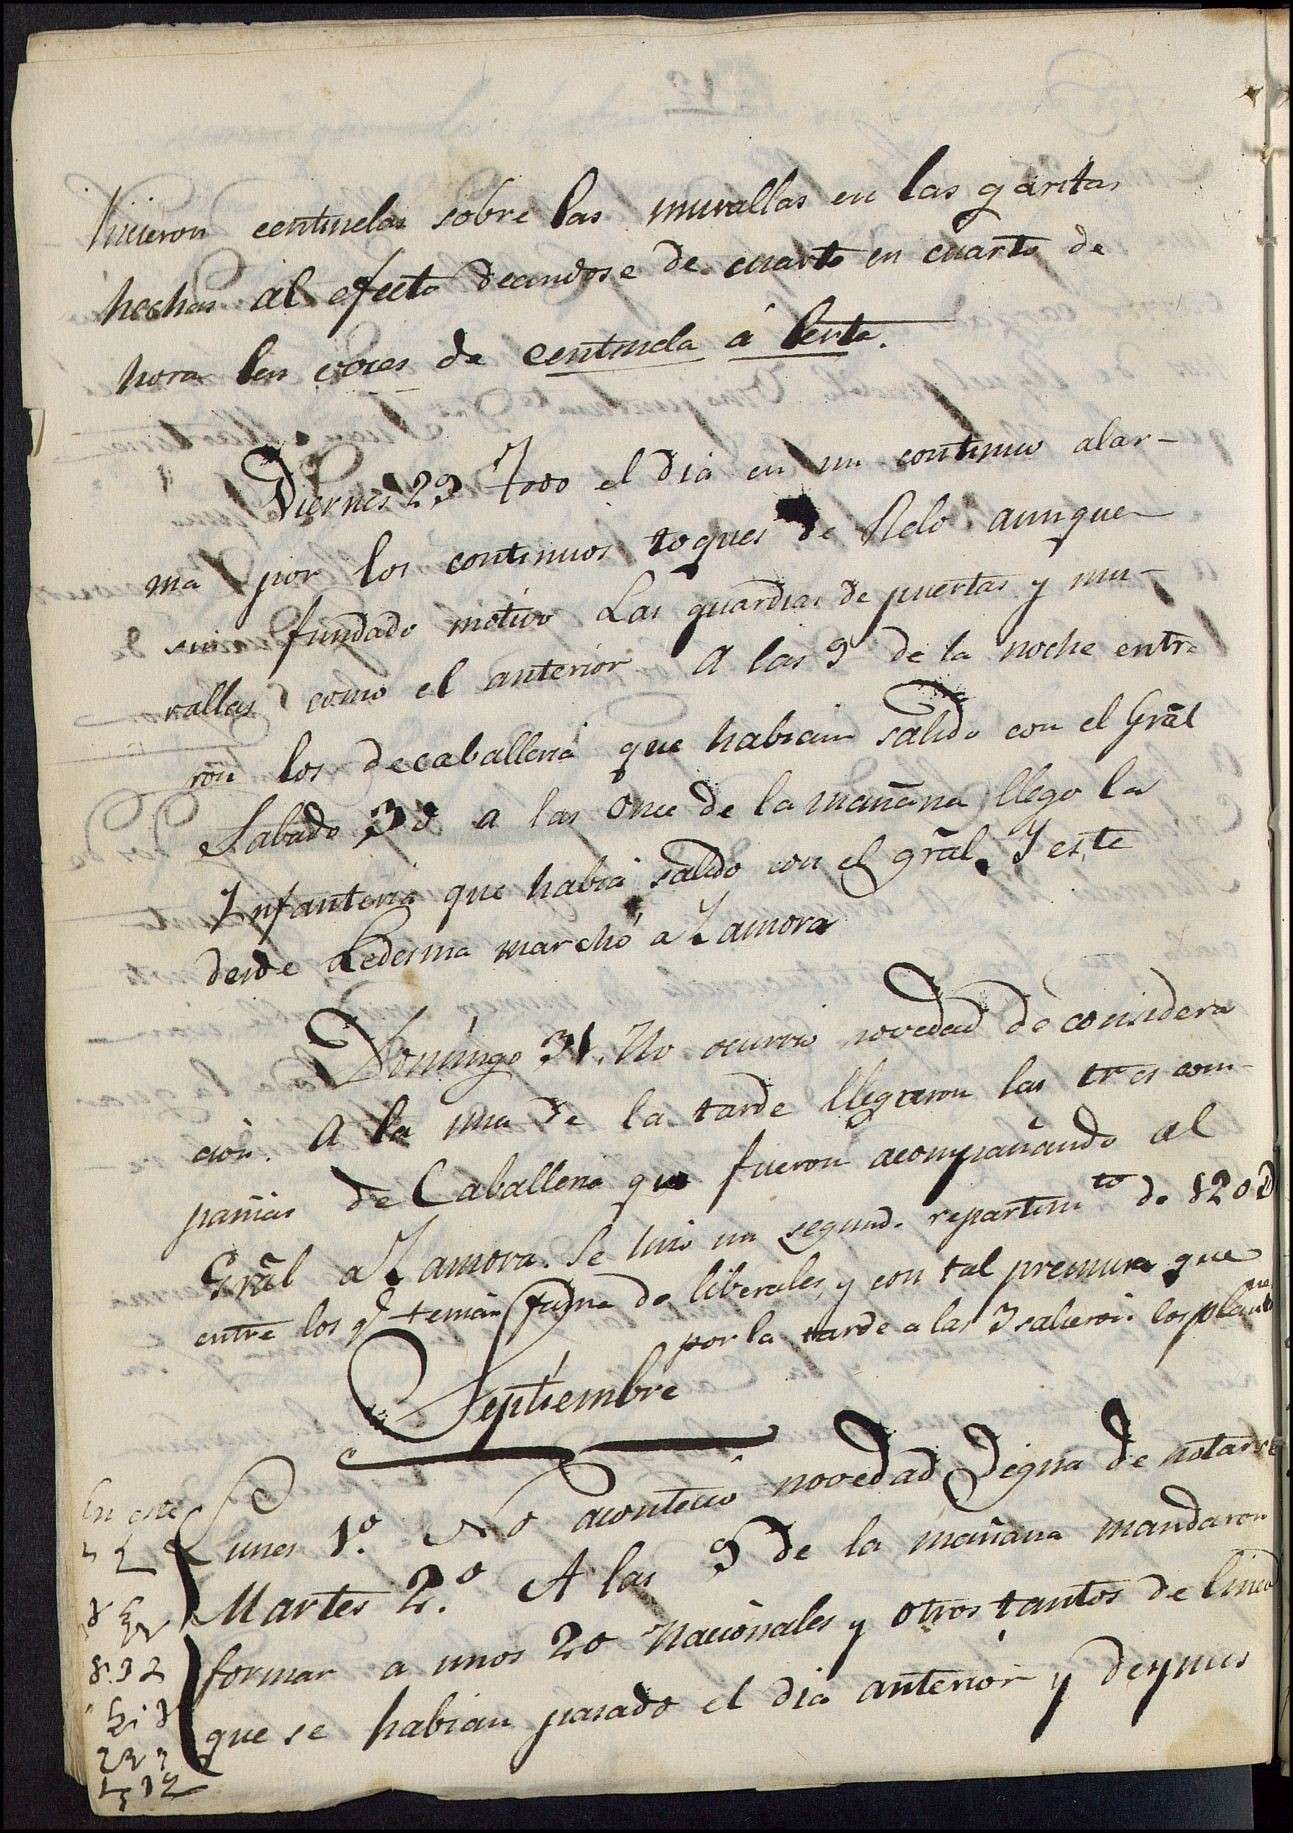 hicieron centinelas sobre las murallas en las garitas
hechas al efecto deandose de cuarto en cuarto de
hora las voces de centinela á lerta.
Viernes 29 Todo el dia en un continuo alar-
ma por los continuos toques de Reló aunque
sin fundado motivo Las guardias de puertas y mu-
rallas como el anterior A las 9 de la noche entra
ron los de caballeria que habian salido con el Grãl
Sabado 30 a las once de la mañana llego la
Infanteria que habia salido con el grãl. Y este
desde Ledesma marchó a Zamora
Domingo 31. No ocurrio novedad de considera
cion. A la una de la tarde llegaron las tres com-
pañias de Caballeria que fueron acompañando al
Grãl a Zamora. Se hizo un segundo repartimto de 120
entre los q. tenian fama de liberales, y con tal premura que
por la tarde a las 3 salieron los
Septiembre
Lunes 1º. No acontecio novedad digna de notarse
Martes 2.º A las 9 de la mañana mandaron
formar a unos 20 Nacionales y otros tantos de linea
que se habian pasado el dia anterior y despues
En este